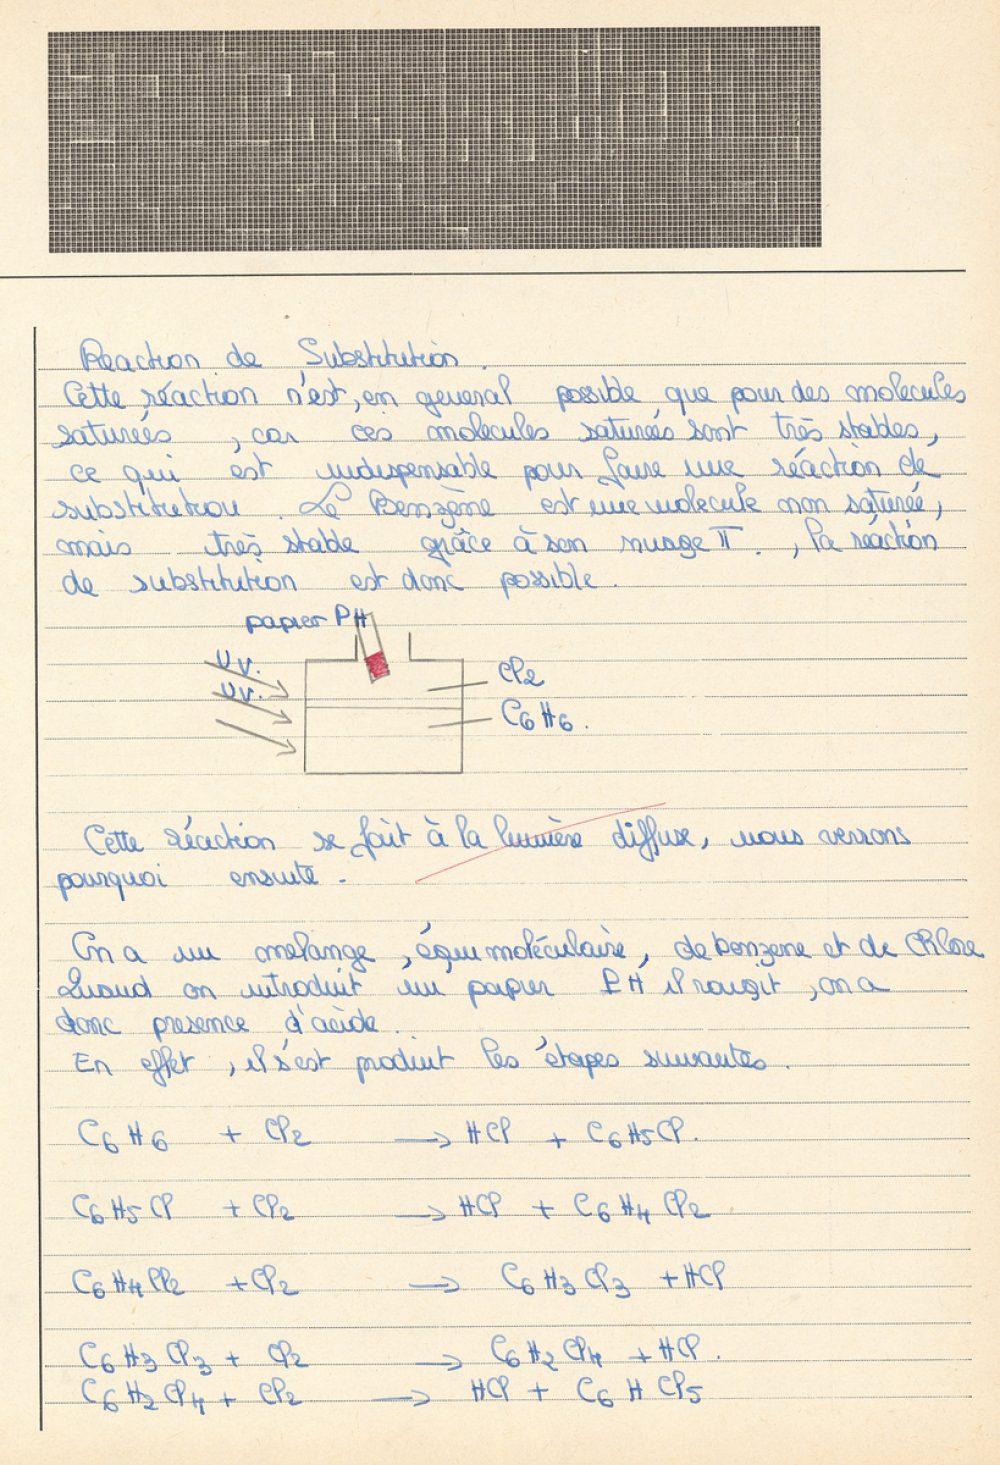 Reaction de Substitution.
Cette réaction n'est, en general possible que pour des molecules
saturees, car ces molecules saturés sont très stables,
ce qui est indispensable pour faire une réaction de
substitution. Le Benzène est une molecule non saturée,
mais très stable grâce à son nuage π., la réaction
de substitution est donc possible.
papier PH
U.V.
U.V.
Cl2
C6H6.
Cette réaction se fait à la lumière diffuse, nous verrons
pourquoi ensuite.
On a un melange, équimoléculaire, de benzene et de Chlore
Quand on introduit un papier PH il rougit, on a
donc presence d'acide.
En effet, il s'est produit les étapes suivantes.
C6H6 + Cl2 → HCl + C6H5Cl.
C6H5Cl + Cl2 → HCl + C6H4Cl2
C6H4Cl2 + Cl2 → C6H3Cl3 + HCl
C6H3Cl3 + Cl2 → C6H2Cl4 + HCl.
C6H2Cl4 + Cl2 → HCl + C6HCl5